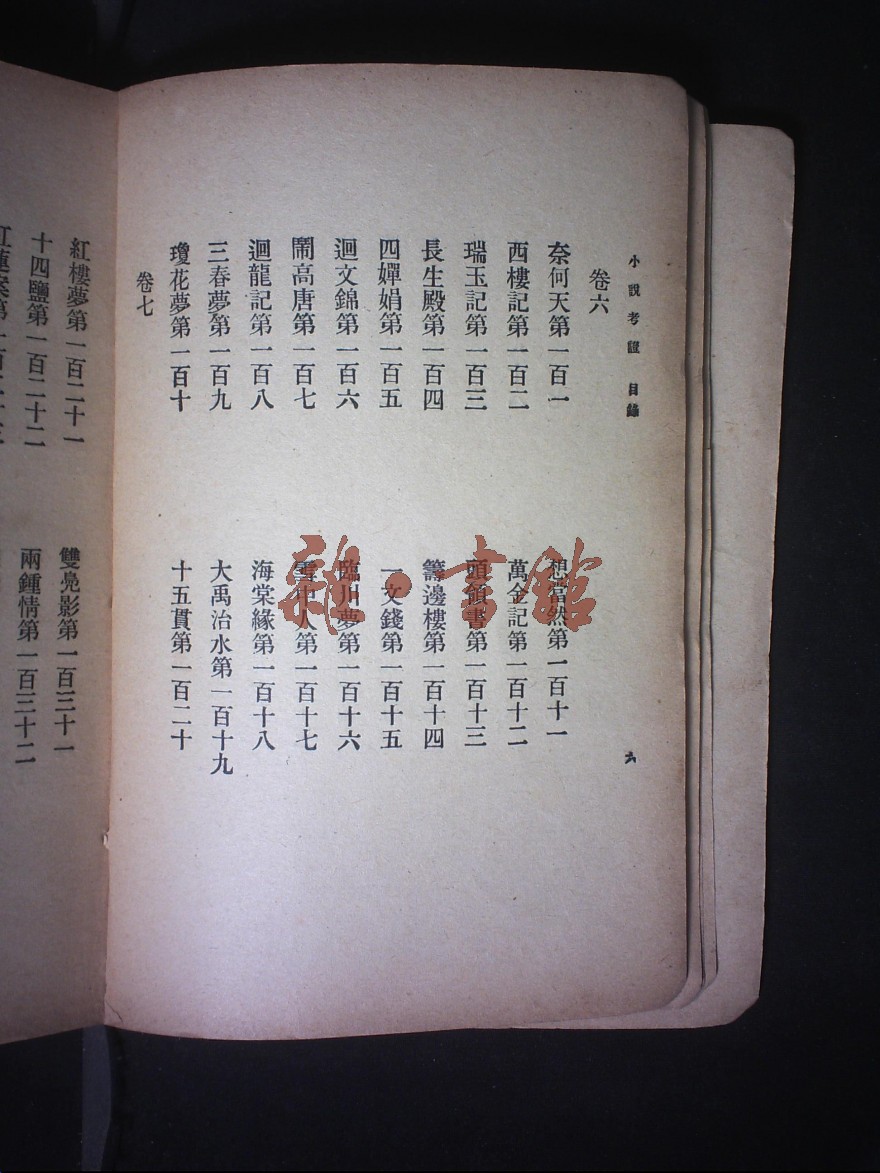 小說考證 目錄
六
卷六
奈何天第一百一
西樓記第一百二
瑞玉記第一百三
長生殿第一百四
四嬋娟第一百五
迴文錦第一百六
鬧高唐第一百七
迴龍記第一百八
三春夢第一百九
瓊花夢第一百十
想當然第一百十一
萬金記第一百十二
頭鬚書第一百十三
籌邊樓第一百十四
一文錢第一百十五
臨川夢第一百十六
雪中人第一百十七
海棠緣第一百十八
大禹治水第一百十九
十五貫第一百二十
卷七
紅樓夢第一百二十一
十四鹽第一百二十二
雙鳧影第一百三十一
兩鍾情第一百三十二
雜·書館